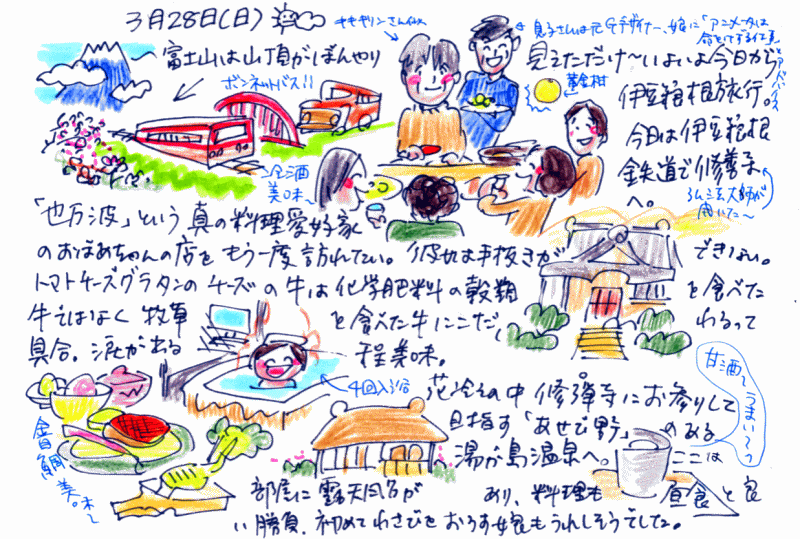 3月28日(日)
富士山は山頂がぼんやり
見えただけ〜いよいよ今日から
伊豆箱根旅行。
今日は伊豆箱根
鉄道で修善寺
へ。
ボンネットバス!!
キモキリンさん似
息子さんは元Gデザイナー、娘に「アニメータは
命をけずる仕事」
とアドバイス
黄金柑
全酒
美味〜
弘法大師が
開いた〜
「也万波」という真の料理愛好家
のおばあちゃんの店をもう一度訪れてたい。彼女は手抜きが
できない。
トマトチーズグラタンのチーズの牛は化学肥料の穀類
を食べた
牛ではなく牧草
を食べた牛にこだ
わるって
具合。涙がある
程美味。
4回入浴
花冷えの中修禅寺にお参りして
目指す「あせび野」のある
湯が島温泉へ。ここは
甘酒〜うまい〜っ
金目鯛美味〜
部屋に露天風呂が
あり、料理も
昼食と良
い勝負、初めてわさびをおろす女良もうれしそうでした。